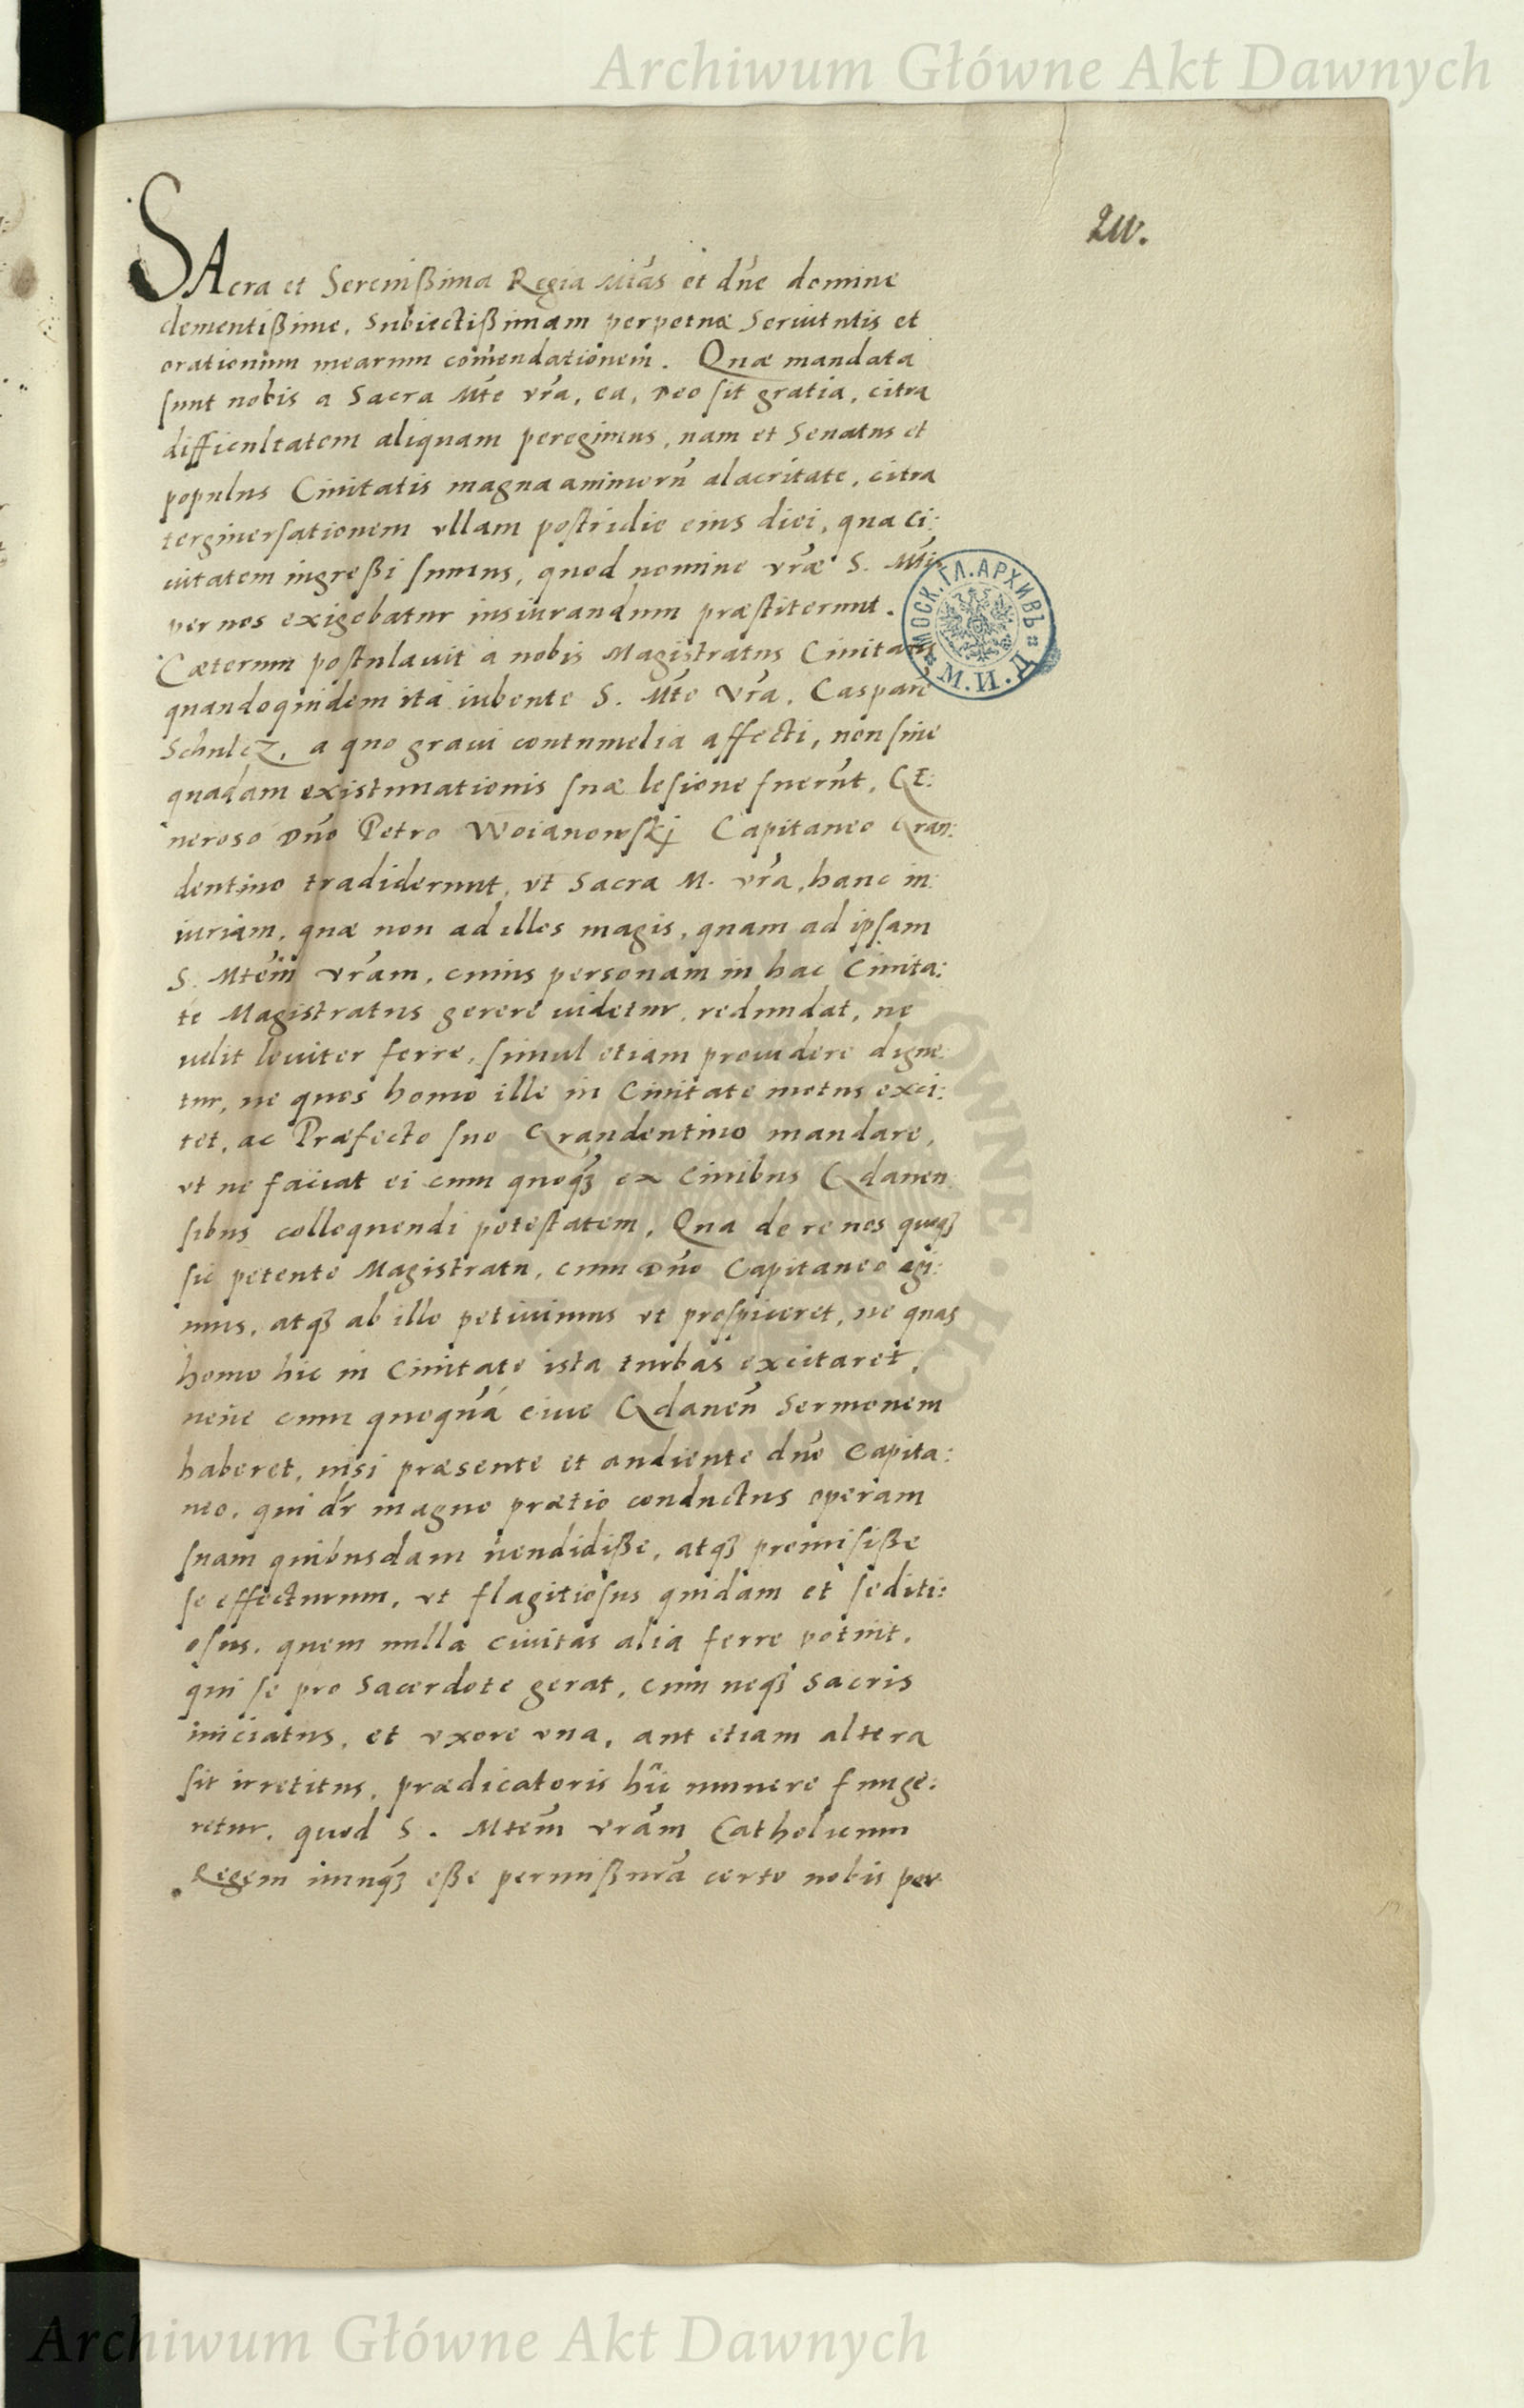 Archiwum Główne Akt Dawnych
SAcra et Serenißima Regia Mtás et dńe domine
clementißime, Subiectißimam perpetuæ Seruitutis et
orationum mearum com̃endationem. Quæ mandata
sunt nobis a Sacra Mte vrá, ea, Deo sit gratia, citra
difficultatem aliquam peregimus, nam et Senatus et
populus Ciuitatis magna animorũ alacritate, citra
tergiuersationem vllam postridie eius diei, qua ci:
uitatem ingreßi sumus, quod nomine vræ S. Mtis
per nos exigebatur insiurandum præstiterunt.
Cæterum postulauit a nobis Magistratus Ciuitatis
quandoquidem ita iubente S. Mte Vra, Caspare
Schulcz, a quo graui contumelia affecti, non sine
quadam existimationis suæ lesione fuerũt, GE:
neroso Dńo Petro Woianowskj Capitaneo Gran:
dentino tradiderunt, vt Sacra M. vra, hanc in:
iuriam, quæ non ad illos magis, quam ad ipsam
S. Mtem vram, cuius personam in hac Ciuita:
te Magistratus gerere uidetur, redundat, ne
uelit leuiter ferre, simul etiam prouidere digne:
tur, ne quos homo ille in Ciuitate motus exci:
tet, ac Præfecto suo Graudentino mandare,
vt ne faciat ei cum quoqȝ ex Ciuibus Gdanen
sibus colloquendi potestatem, Qua de re nos quoqȝ
sic petente Magistratu, cum Dńo Capitaneo egi:
mus, atqȝ ab illo petiuimus vt prospiceret, ne quas
homo hic in Ciuitate ista turbas excitaret,
neue cum quoquã ciue Gdaneñ Sermonem
haberet, nisi præsente et audiente dno Capita:
neo, qui dr magno prætio conductus operam
suam quibusdam uendidiße, atqȝ promisiße
se effecturum, vt flagitiosus quidam et sediti:
osus, quem nulla ciuitas alia ferre potuit,
qui se pro Sacerdote gerat, cum neqȝ sacris
iniciatus, et vxore vna, aut etiam altera
sit irretitus, prædicatoris hic munere funge:
retur, quod S. Mtem vram Catholicum
Regem nunqȝ eße permißurã certo nobis per
МОСК. ГЛ. АРХИВЪ
М.И.Д.
Archiwum Główne Akt Dawnych